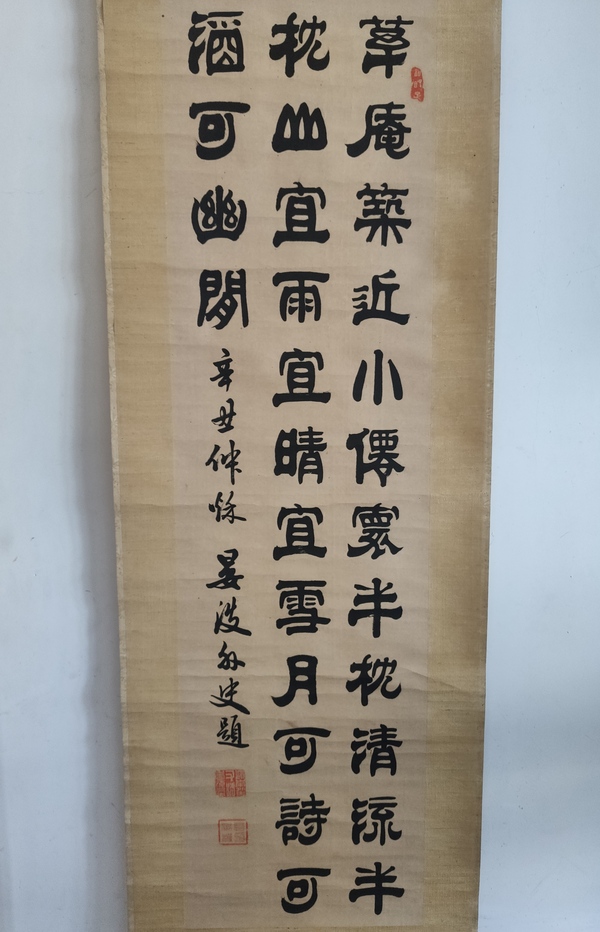 草庵築近小僊寰半枕清流半
枕山宜雨宜晴宜雪月可詩可
酒可幽閒
辛丑仲秋 晏波外史題